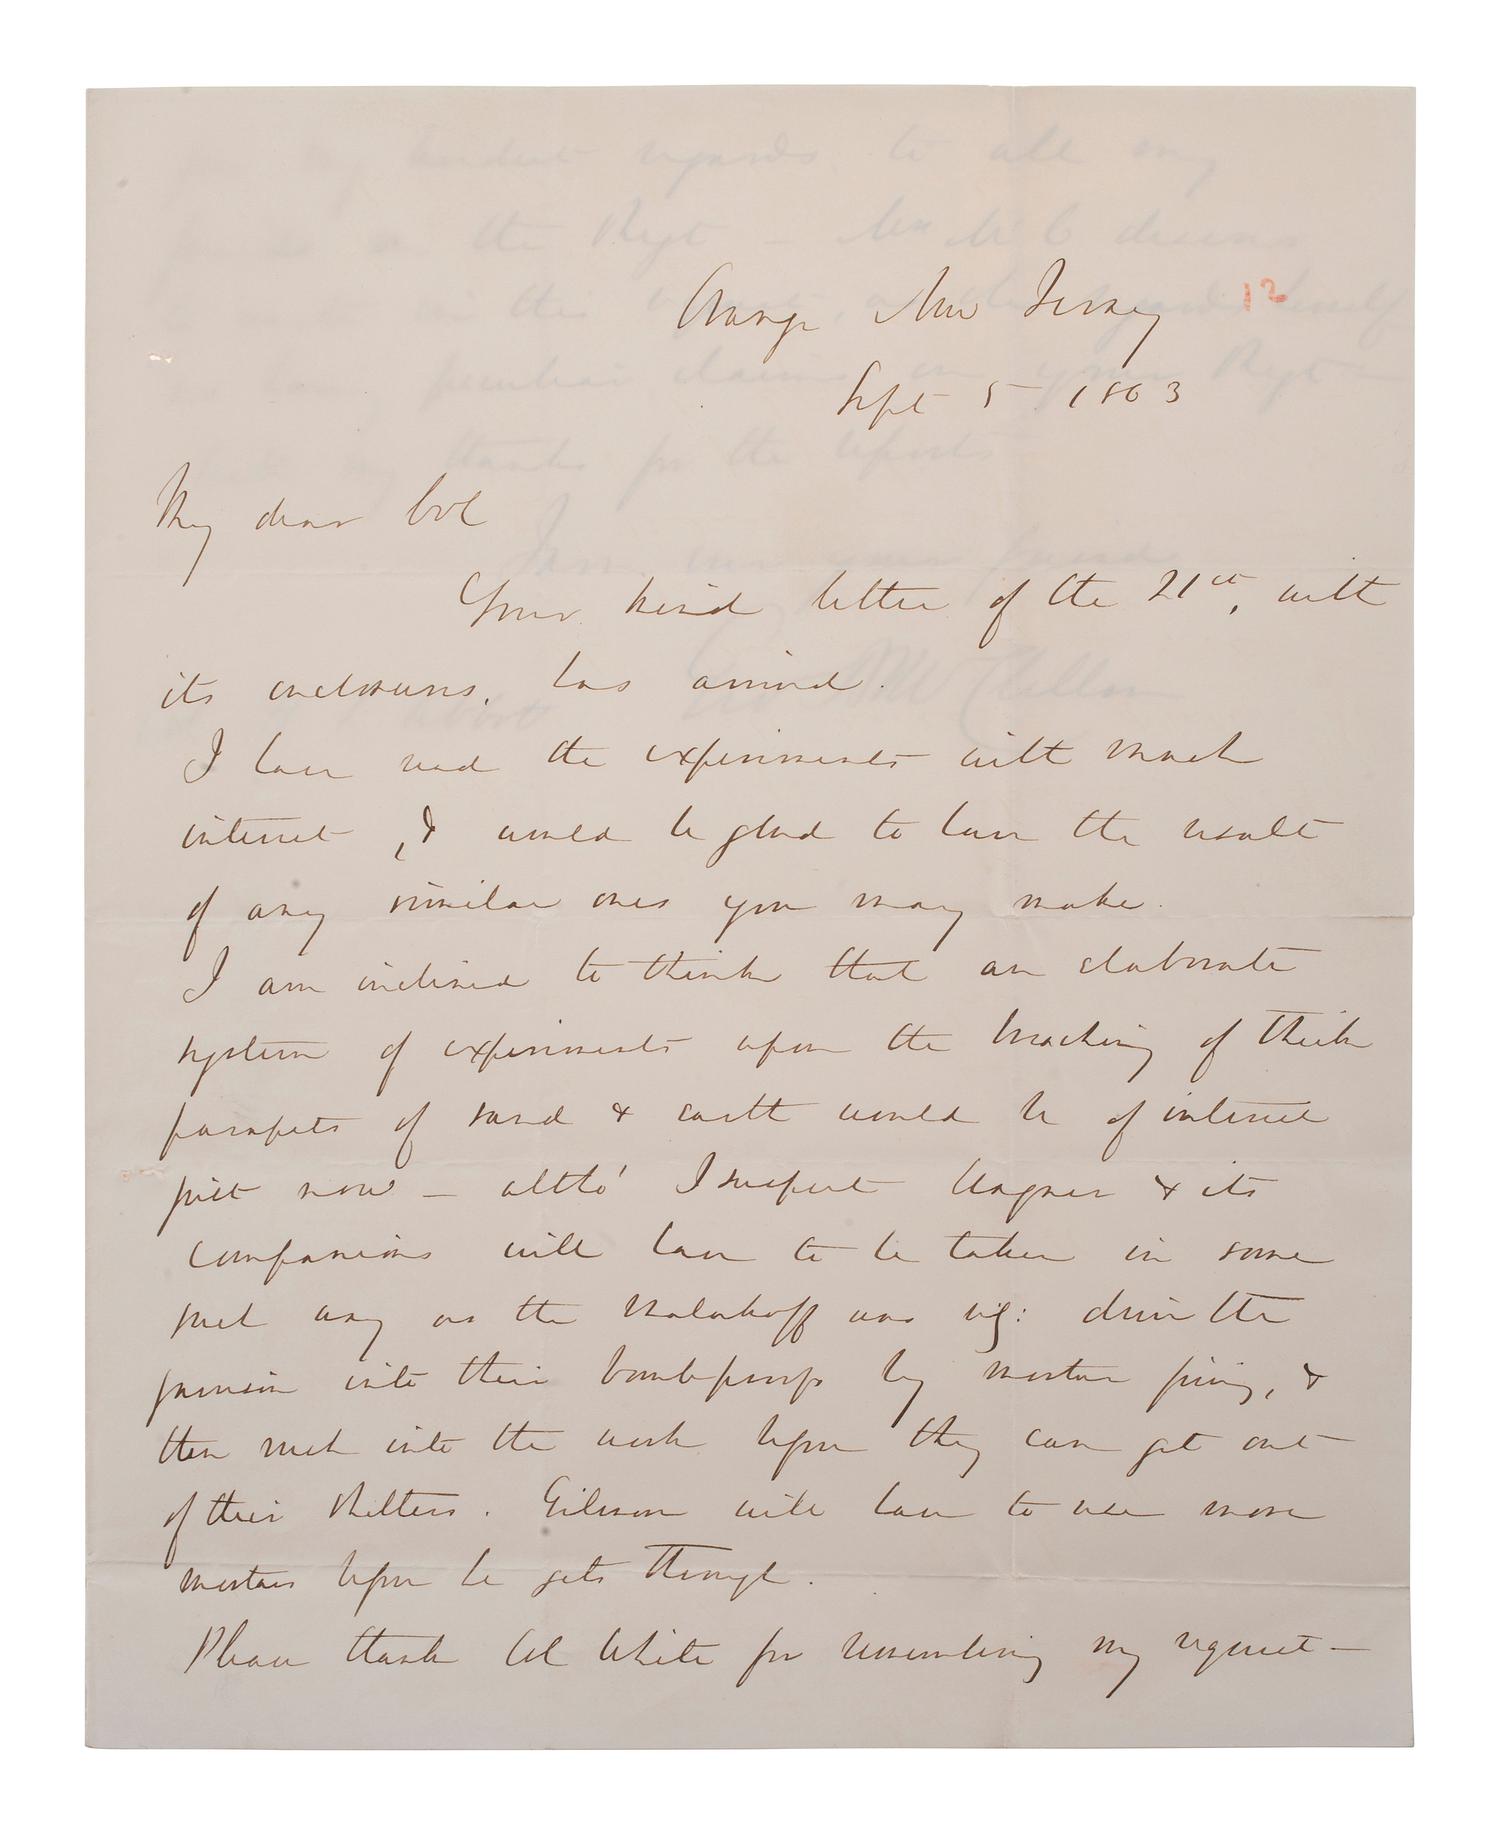 Orange New Jersey 12
Sept 5 1863
My dear Col
Your kind letter of the 21st, with
its enclosures, has arrived.
I have read the experiments with much
interest, & would be glad to have the result
of any similar ones you may make.
I am inclined to think that an elaborate
system of experiments upon the breaching of thick
parapets of sand & earth would be of interest
just now — altho' I suspect Wagner & its
companions will have to be taken in some
such way as the Malakoff was viz: drive the
garrison into their bombproofs by mortar firing, &
then rush into the work before they can get out
of their shelters. Gilmore will have to use more
mortars before he gets through.
Please thank Col White for remembering my request —